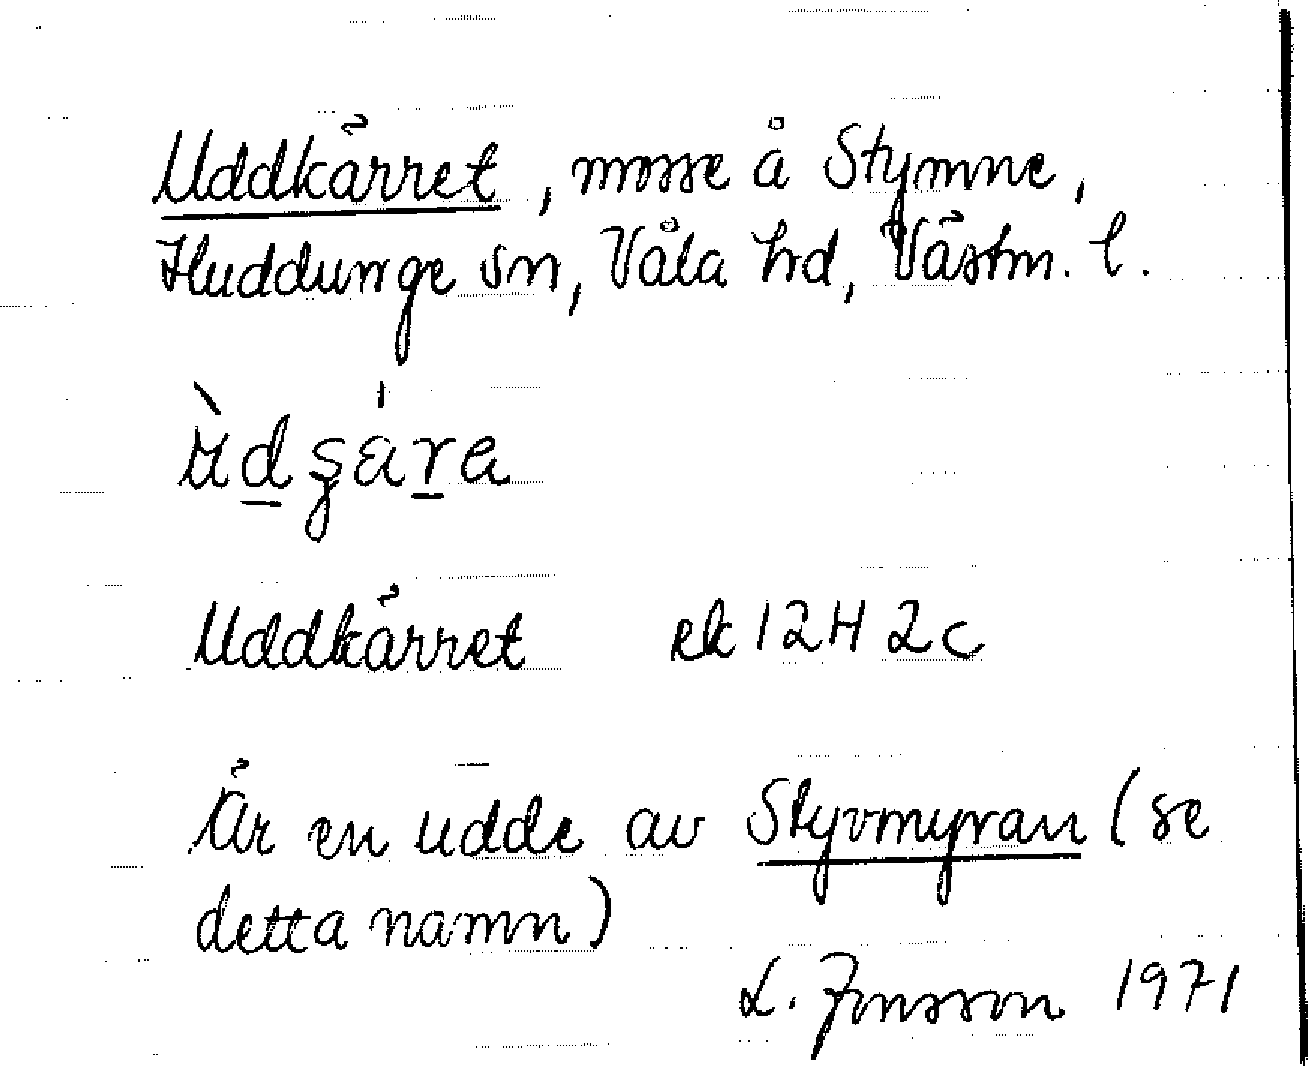 Uddkärret, mosse å Stymne,
Huddunge sn, Våla hd, Västm. l.
Uddkärret ek 12H 2c
Är en udde av Styvmyran (se
detta namn)
L. Jonsson 1971